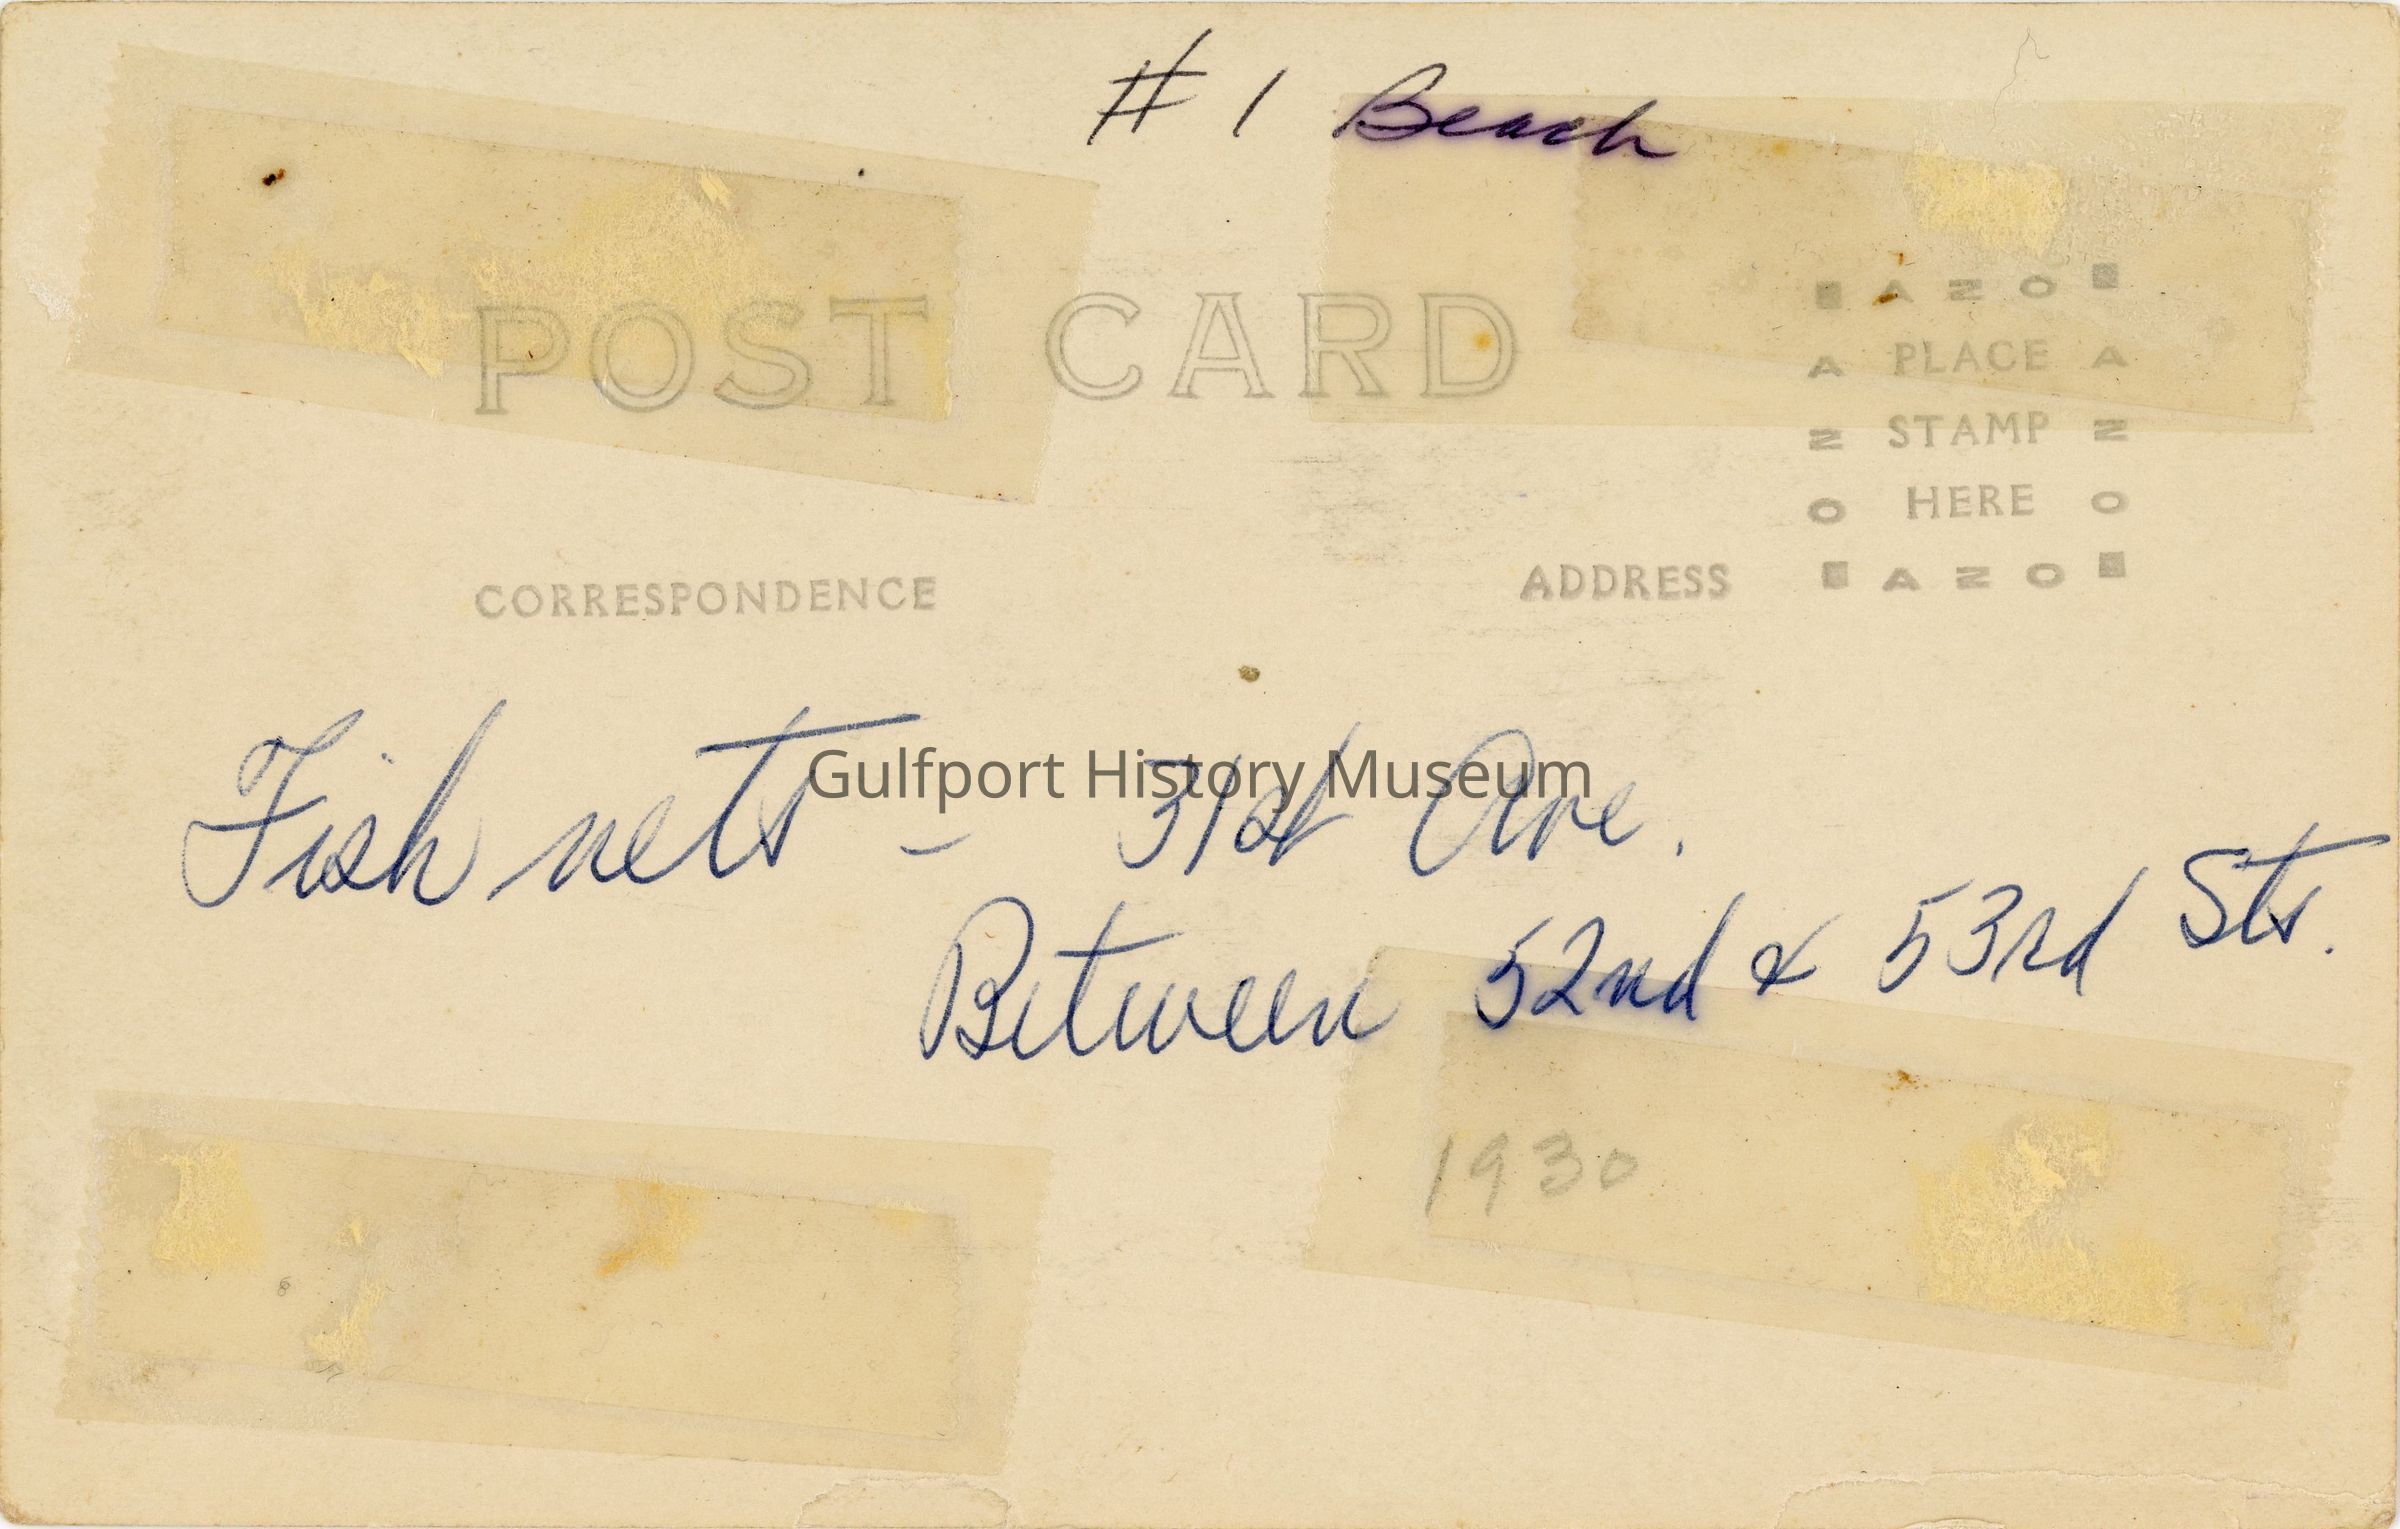 # 1 Beach
POST CARD
AZO
PLACE
STAMP
HERE
AZO
AZO
AZO
CORRESPONDENCE
ADDRESS
Gulfport History Museum
Fish nets - 31st Ave.
Between 52nd & 53rd Sts.
1930